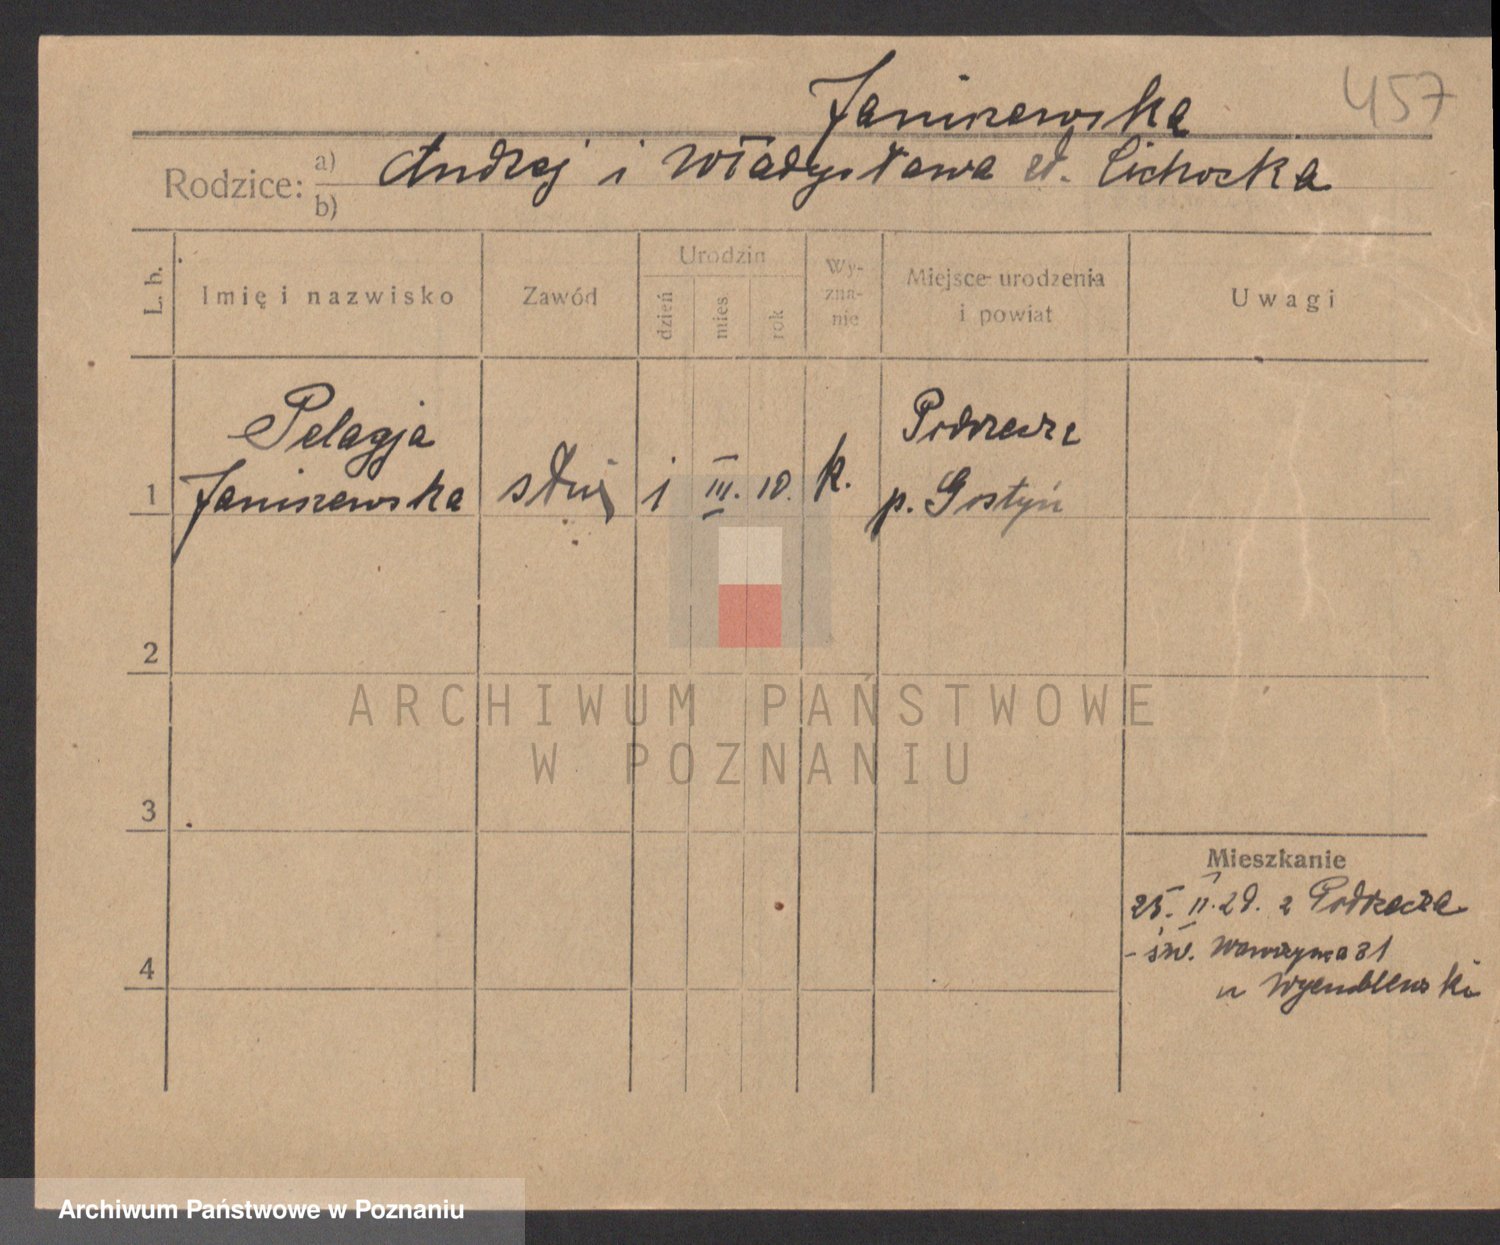 457
Janiszewska
Rodzice: a) b) Andrzej i Władysława zd. Cichocka
L. b.
Imię i nazwisko
Zawód
Urodzin
dzień
mies.
rok
Wy-
zna-
nie
Miejsce urodzenia
i powiat
Uwagi
1
Pelagja
Janiszewska
służ
1
III.
10.
k.
Podrzecze
p. Gostyń
2
3
4
ARCHIWUM PAŃSTWOWE
W POZNANIU
Mieszkanie
25. II. 28. z Podrzecza
- św. Wawrzyńca 31
u
Archiwum Państwowe w Poznaniu